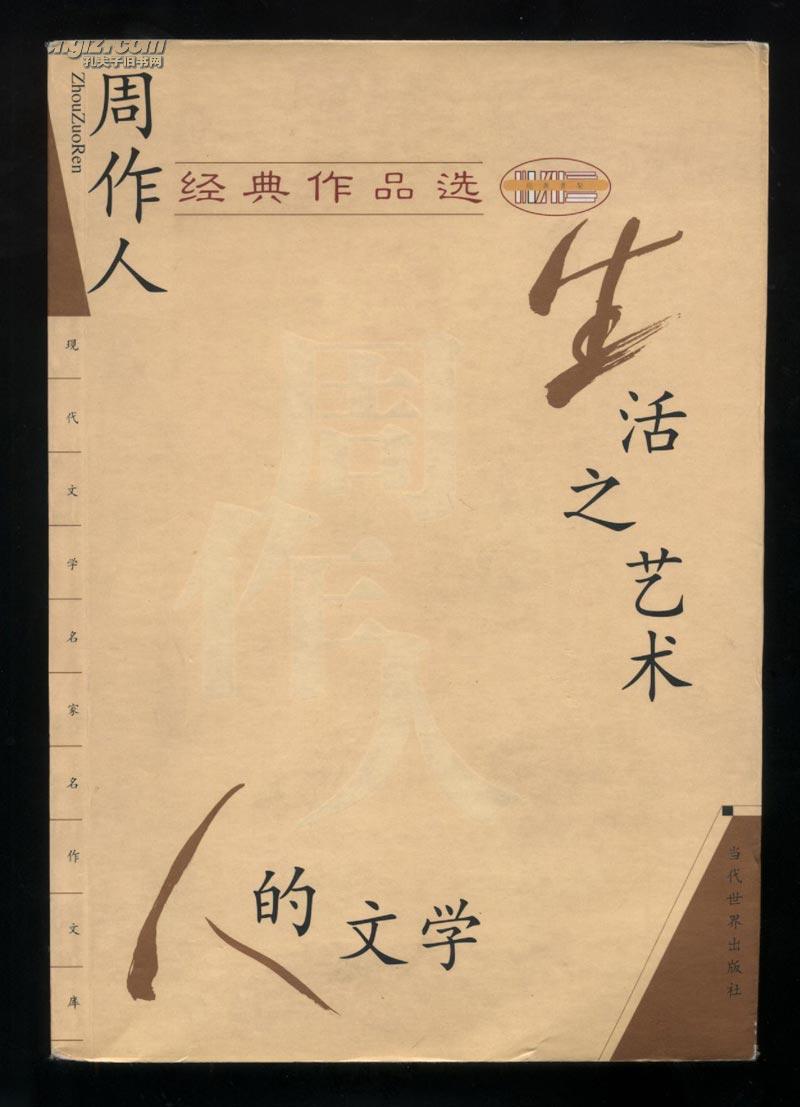 周作人
ZhouZuoRen
经典作品选
生活之艺术
人的文学
周作人
现代文学名家名作文库
当代世界出版社
孔夫子旧书网